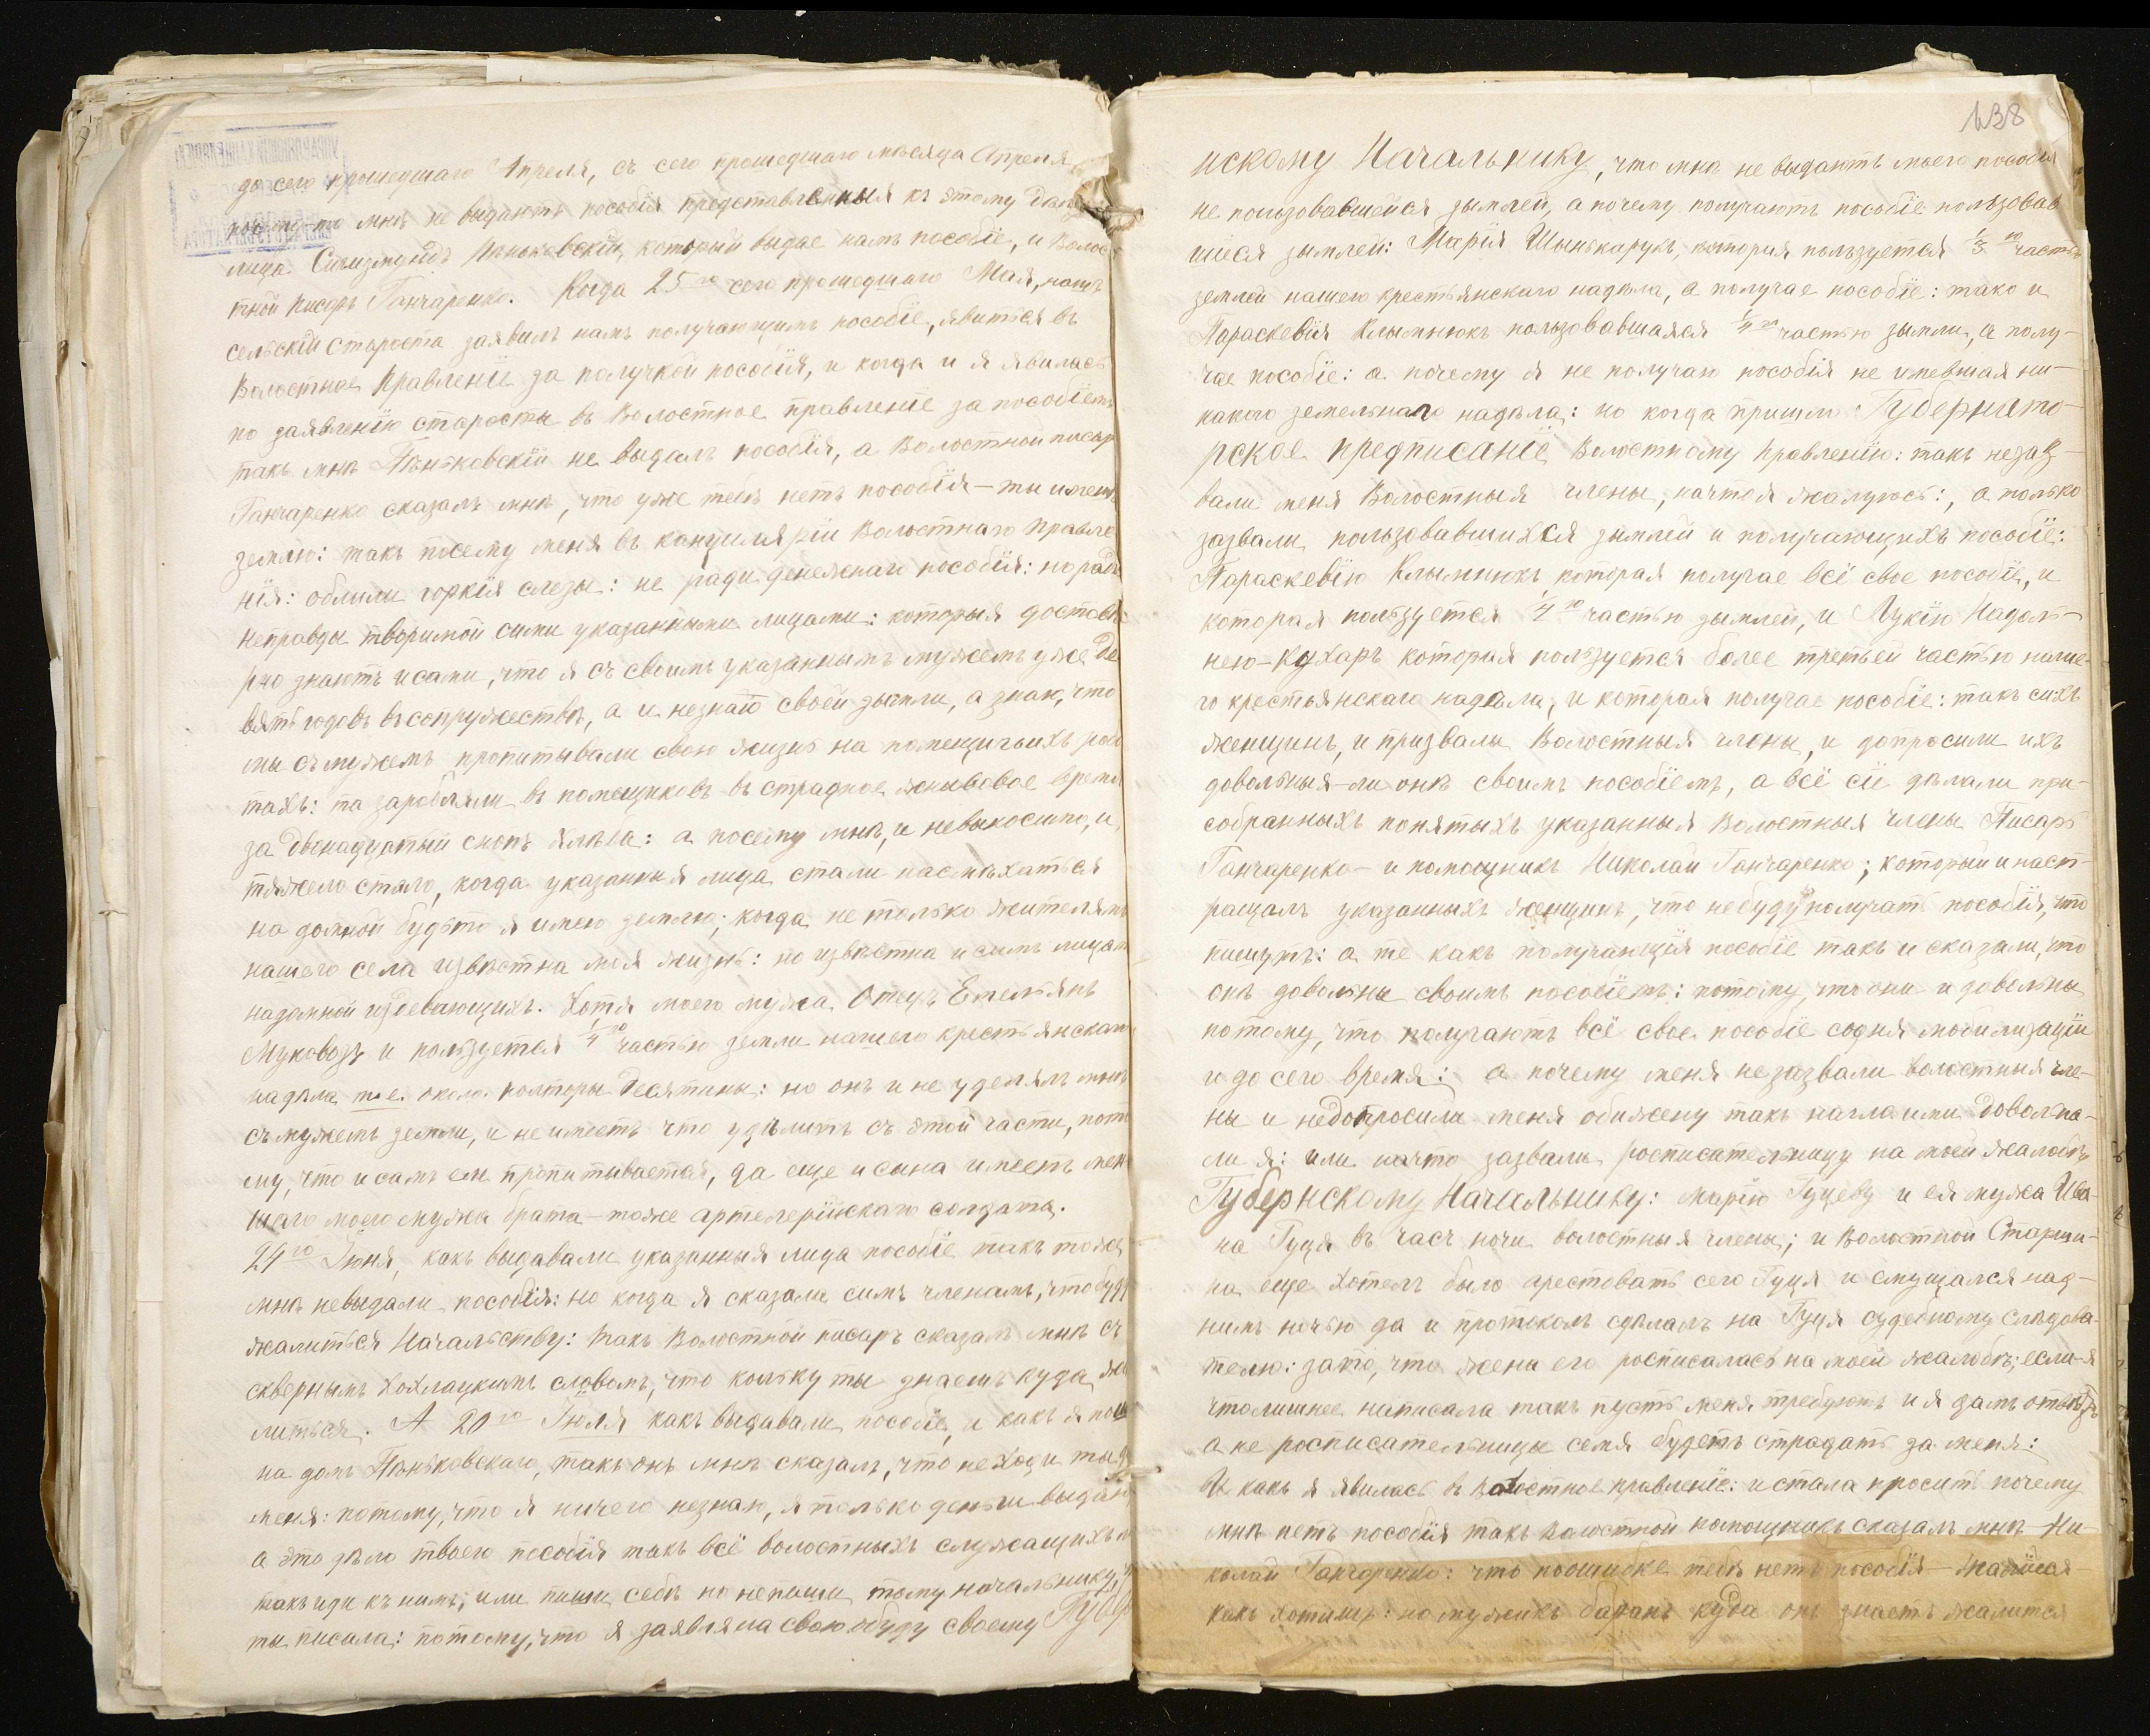 до сего прошедшаго Апреля, съ сего прошедшаго мѣсяца Апреля
мнѣ не выдаютъ пособія представленныя къ этому
лица Сигизмундъ Пѣньковскій, который выдае намъ пособіе, и Волос
тной писарь Ганчаренко. Когда 25го сего прошедшаго Мая, нашъ
сельскій староста заявилъ намъ получающимъ пособіе, явиться въ
Волостное Правленіе за получкой пособія, и когда и я явилась
по заявленію старосты въ Волостное правленіе за пособіемъ
такъ мнѣ Пѣньковскій не выдалъ пособія, а Волостной писарь
Ганчаренко сказалъ мнѣ, что уже тебѣ нетъ пособія – ты имеешь
землю: такъ посему меня въ канциляріи Волостнаго Правле
нія: облили горкія слезы: не ради денежнаго пособія: но ради
неправды творимой сими указанными лицами: которыя достове
рно знаютъ и сами, что я съ своимъ указаннымъ мужемъ уже де
вять годовъ въ сопружествѣ, а и незнаю своей зымли, а знаю, что
мы съ мужемъ пропитывали свою жизнь на помещичьихъ
тахъ: та заробляли въ помещиковъ въ страдное жнивовое время
за двенадцатый снопъ хлѣба: а посему мнѣ, и невыносимо, и
тяжело стало, когда указанныя лица стали насмѣхаться
на домной будьто я имею землю; когда не только жителямъ
нашего села извѣстна моя жизнь: но извѣстна и симъ лицамъ
надомной издевающихъ. Хотя моего мужа Отецъ Емельянъ
Муковозъ и пользуется 1/4ю частью земли нашего крестьянскаго
надѣла т.е. около полторы Десятины: но онъ и не уделялъ мнѣ
съ мужемъ земли, и не имеетъ что удѣлить съ этой части, пот
ому, что и самъ ею пропитывается, да еще и сына имеетъ мен
шаго моего мужа брата – тоже артелерійскаго солдата.
24го Іюня, какъ выдавали указанныя лица пособіе такъ тоже
мнѣ невыдали пособія: но когда я сказала симъ членамъ, что буду
жалиться Начальству: такъ Волостной писарь сказалъ мнѣ съ
сквернымъ хохлацкимъ словомъ, что кольку ты знаешь куда жа
литься. А 20го Іюля какъ выдавали пособіе, и какъ я пош
на домъ Пѣньковскаго, такъ онъ мнѣ сказалъ, что не ходи ты до
меня: потому, что я ничего незнаю, я только деньги выдаю
а это дѣло твоего пособія такъ всё волостныхъ служащихъ
такъ иди къ нимъ; или пиши себѣ но непиши тому начальнику,
ты писала: потому, что я заявляла свою обуду своему Губер
138
нскому Начальнику, что мнѣ не выдаютъ моего пособія
не пользовавшейся зымлей, а почему получаютъ пособіе пользовав
шіеся зымлей: Марія Шынькарукъ, которая пользуется 1/3ю частью
землей нашего крестьянскаго надѣла, а получае пособіе: тако и
Параскевія Клымнюкъ пользовавшаяся 1/4ю частью зымли, и полу-
чае пособіе: а почему я не получаю пособія не имевшая ни-
какого земельнаго надѣла: но когда пришло Губернато-
рское предписаніе Волостному Правленію: такъ незаз-
вали меня Волостныя члены, начто я жалуюсь:, а только
зазвали пользовавшихся зымлей и получающихъ пособіе:
Параскевію Клымнюкъ которая получае всё свое пособіе, и
которая пользуется 1/4ю частью зымлей, и Лукію Надоль-
нею-Кухаръ которая пользуется более третьей частью наше-
го крестьянскаго надѣла, и которая получае пособіе: такъ сихъ
женщинъ, и призвали Волостныя члены, и допросили ихъ
довольныя-ли онѣ своимъ пособіемъ, а всё сіе дѣлали при-
собранныхъ понятыхъ указанныя Волостныя члены Писарь
Ганчаренко – и помощникъ Николай Ганчаренко; который и наст-
ращалъ указанныхъ женщинъ, что небудутъ получать пособія, что
пишутъ: а те какъ получающія пособіе такъ и сказали, что
онѣ довольны своимъ пособіемъ: потому, что они и довольны
потому, что получаютъ всё свое пособіе содня мобилизаціи
и до сего время: а почему меня незазвали волостныя чле-
ны и недопросили меня обижену такъ нагла ими довольна-
ли я: или начто зазвали росписательницу на моей жалобѣ
Губернскому Начальнику: Марію Гуцеву и ея мужа Ива-
на Гуця въ часъ ночи волостныя члены; и Волостной Старши-
на еще хотелъ было арестовать сего Гуця и смущался над-
нимъ ночью да и протоколъ сдѣлалъ на Гуця судебному слѣдова-
телю: зато, что жена его росписалась на моей жалобѣ; если-я
чтолишнее написала такъ пусть меня требуютъ и я дамъ ответъ
а не росписательницы семя будетъ страдать за меня:
И какъ я явилась въ Волостное правленіе: и стала просить почему
мнѣ нетъ пособія такъ Волостной помощникъ сказалъ мнѣ – Ни-
колай Ганчаренко: что поошибке тебѣ нетъ пособія –
какъ хотишь: но мужикъ баранъ куда онъ знаетъ жалится